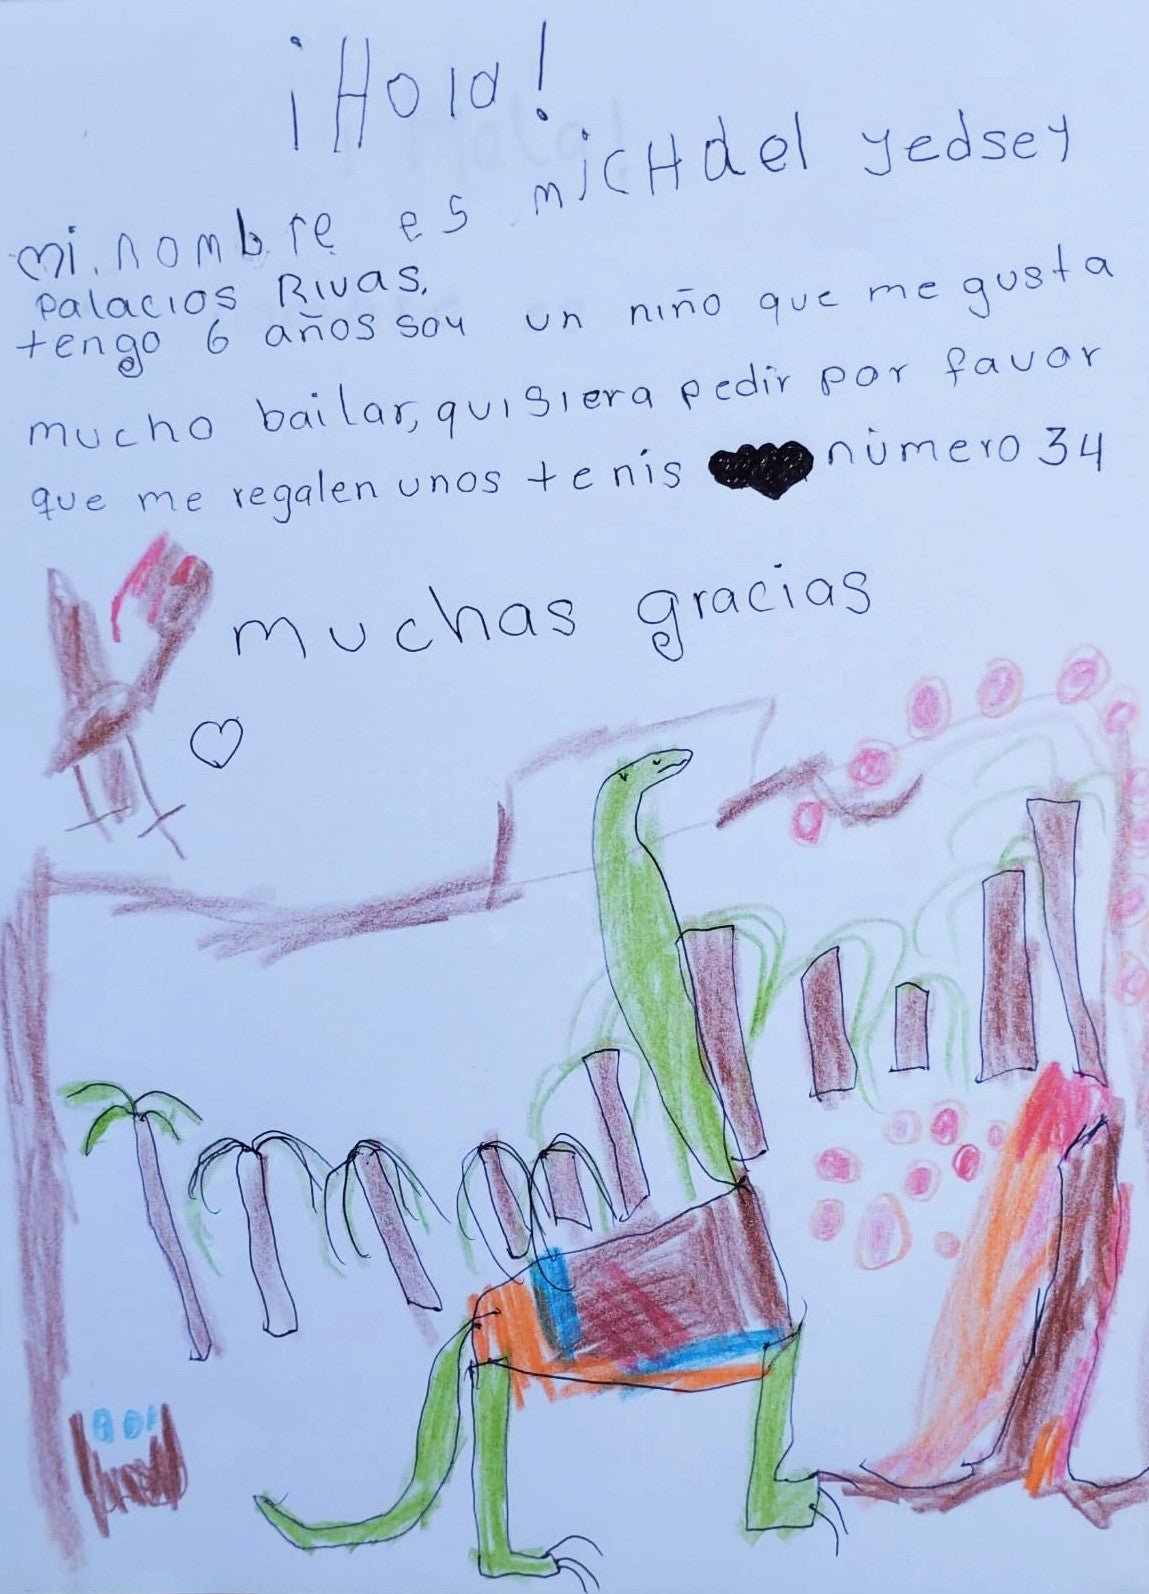 ¡Hola!
mi. nombre es miCHael yedsey
Palacios Rivas,
tengo 6 años soy un niño que me gusta
mucho bailar, quisiera pedir por favor
que me regalen unos tenis número 34
muchas gracias